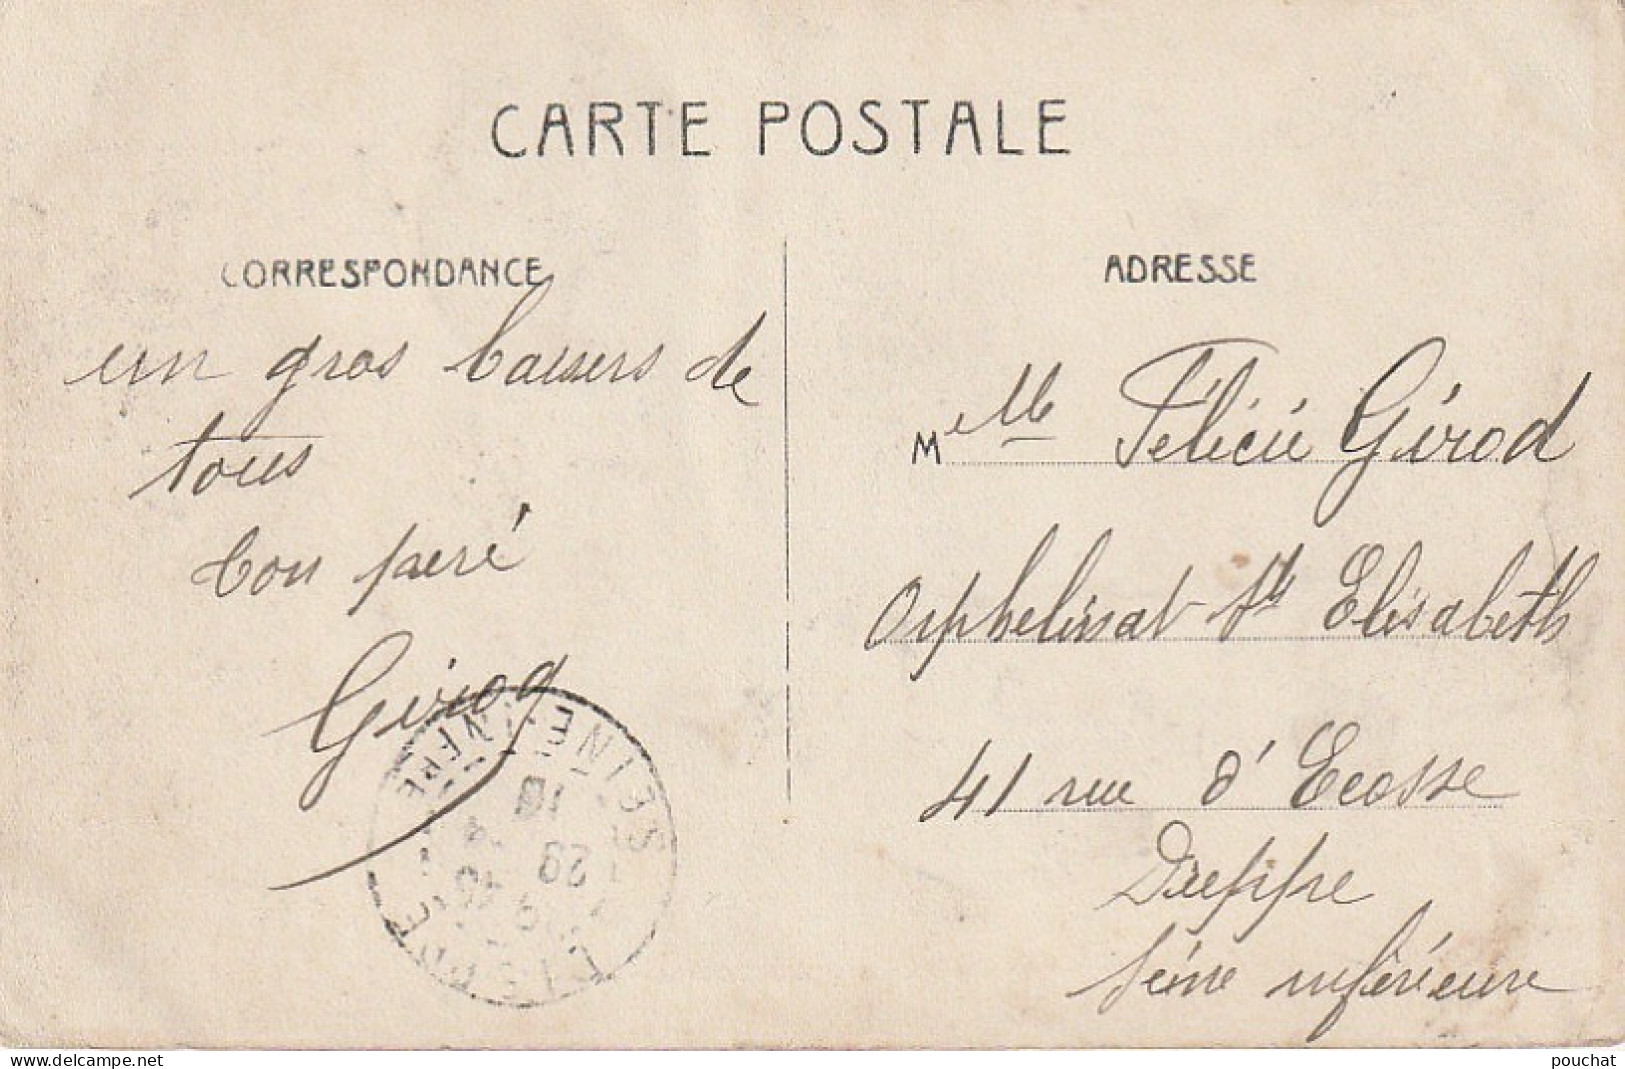 CARTE POSTALE
CORRESPONDANCE
un gros baisers de
tous
ton peré
Girod
ADRESSE
Melle Félicie Girod
Orphelinat Ste Elisabeth
41 rue d'Ecosse
Dieppe
Séine inférieure
SEINE INFRE
29
DIEPPE
www.delcampe.net
pouchat